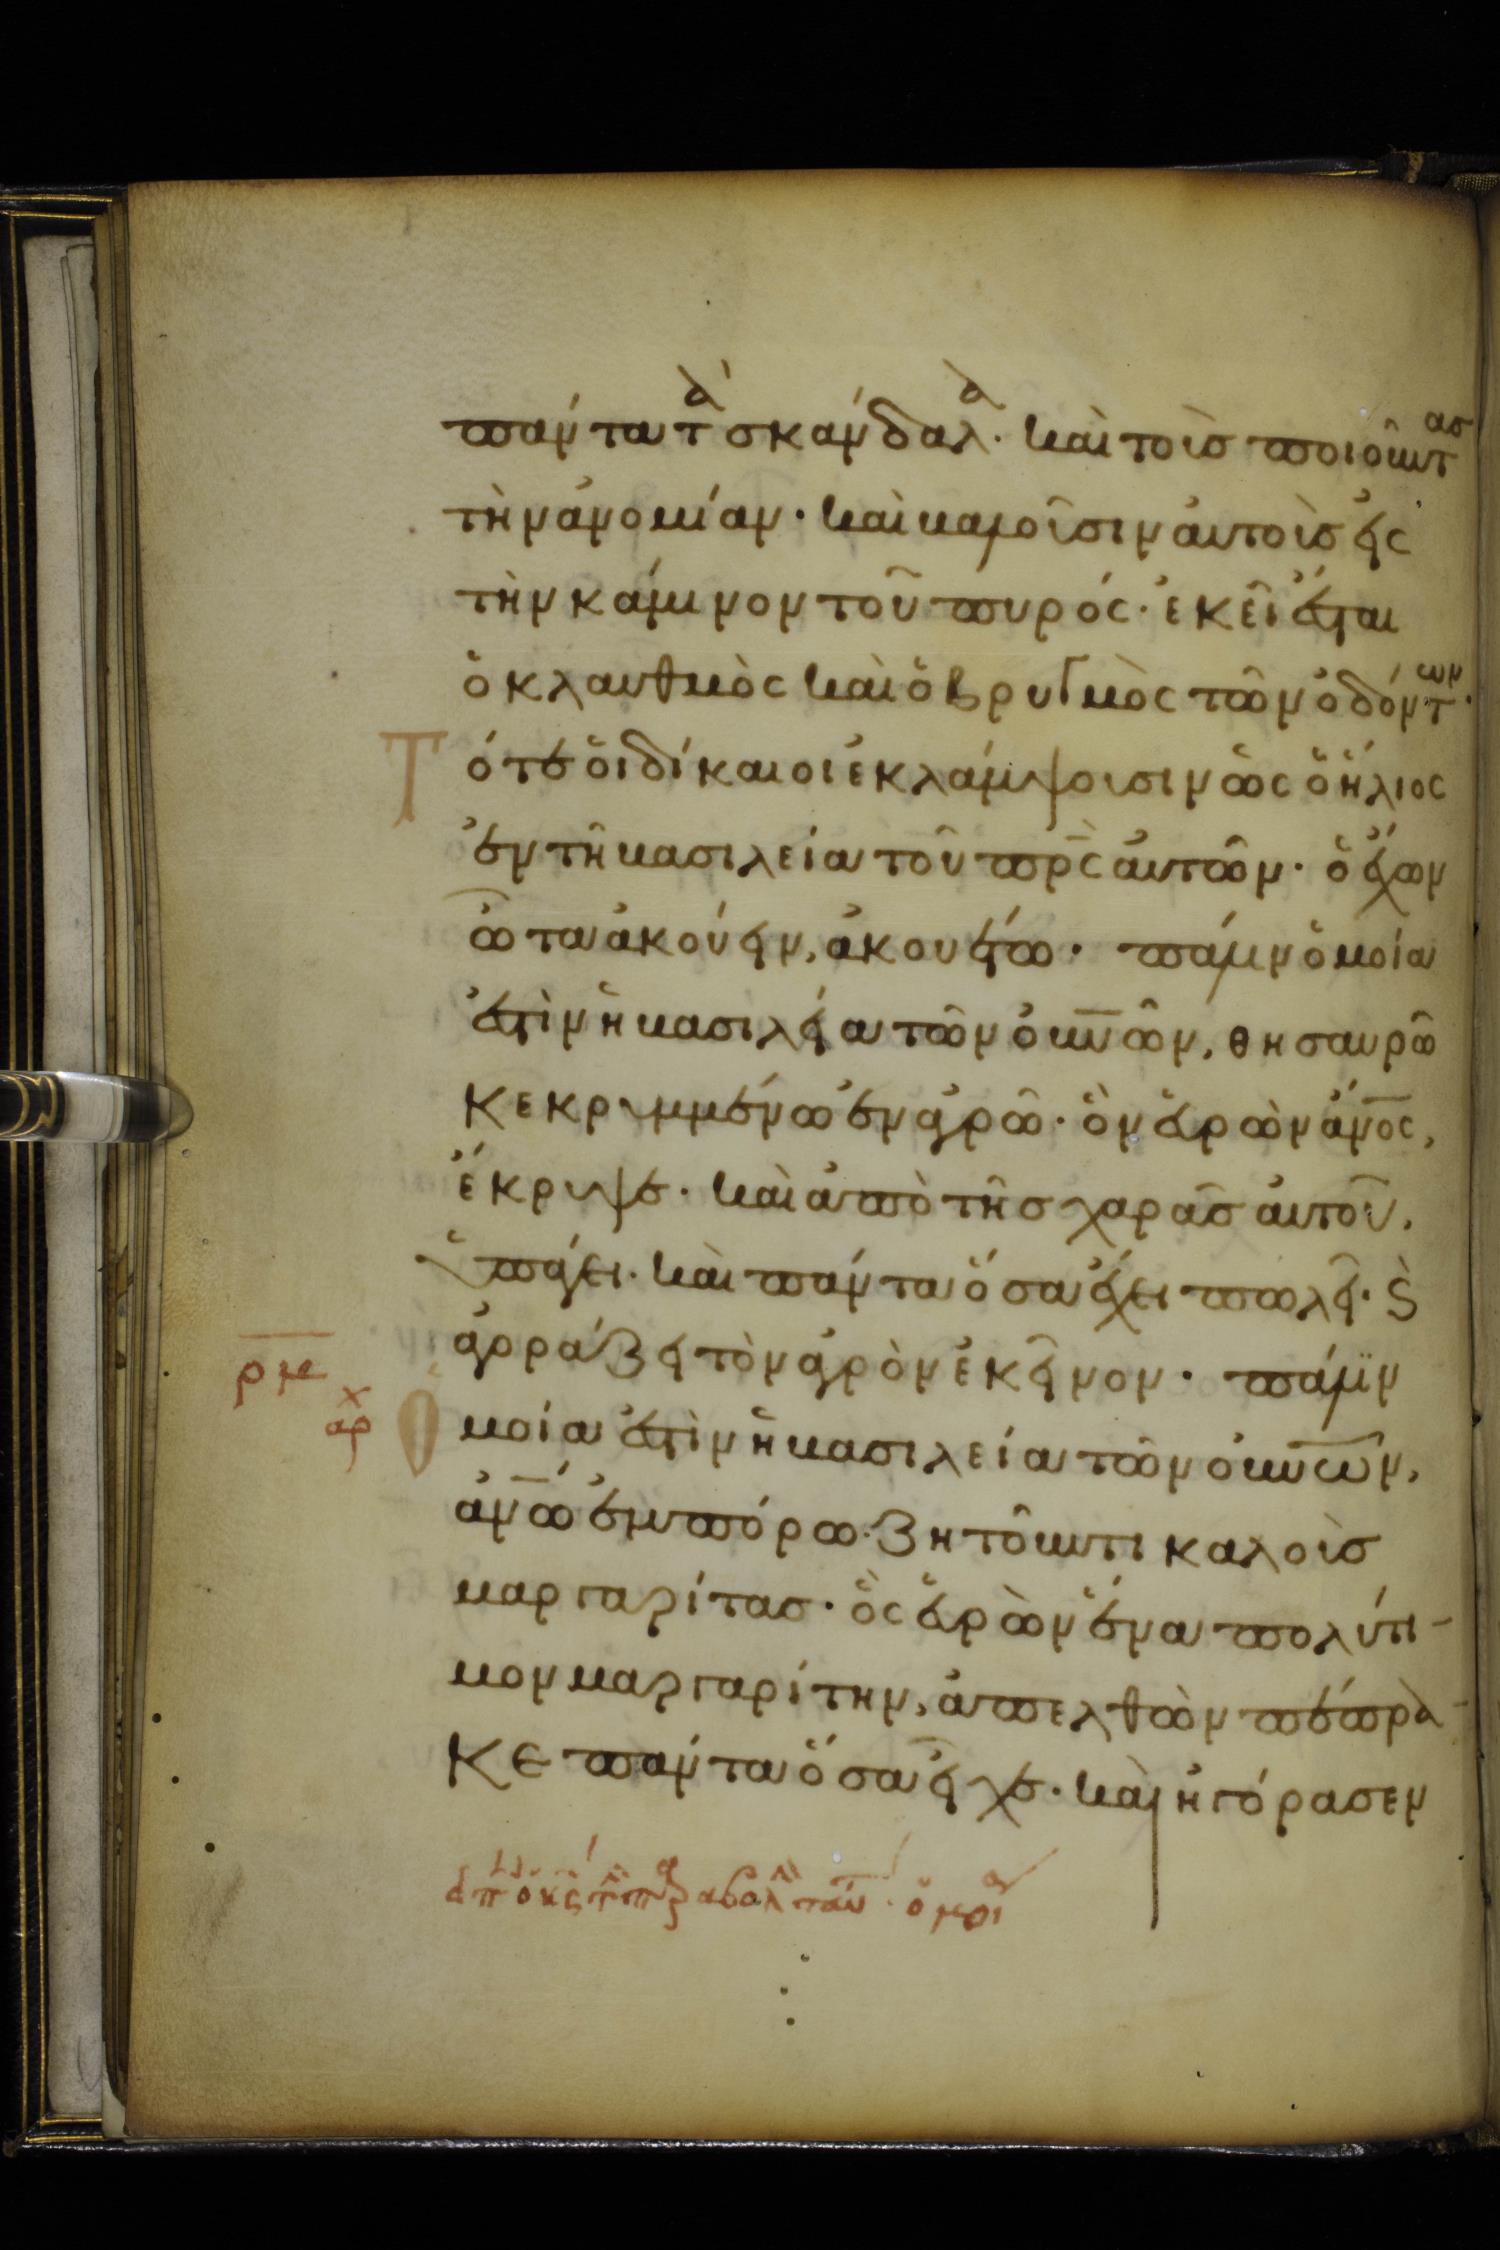 πάντα τὰ σκάνδαλα· καὶ τοὺσ ποιοῦντασ
τὴν ἀνομίαν· καὶ βαλοῦσιν ἀυτοὺσ εἰς
τὴν κάμινον τοῦ πυρός· ἐκεῖ ἔσται
ὁ κλαυθμὸς καὶ ὁ βρυγμὸς τῶν ὀδόντων·
Τότε ὁι δίκαιοι ἐκλάμψουσιν ὡς ὁ ἥλιος
ἐν τῆ βασιλεία τοῦ πρ̅ς ἀυτῶν· ὁ ἔχων
ὦτα ἀκούειν, ἀκουέτω· πάλιν ὁμοία
ἐστὶν ἡ βασιλεία τῶν οὐν̅ῶν, θησαυρῶ
κεκρυμμένω ἐν ἀγρῶ· ὃν ἑυρὼν ἄν̅ος,
ἔκρυψε· καὶ ἀπὸ τῆσ χαρᾶσ ἀυτοῦ,
ὑπάγει· καὶ πάντα ὅσα ἔχει πωλεῖ· ϗ
ἀγοράζει τὸν ἀγρὸν ἐκεῖνον· πάλιν
ρμ
αρχ
Ὁμοία ἐστὶν ἡ βασιλεία τῶν οὐν̅ων,
ἀν̅ω ἐμπόρω· ζητοῦντι καλοὺσ
μαργαρίτασ· ὃς ἑυρὼν ἕνα πολύτι-
μον μαργαρίτην, ἀπελθὼν πέπρα-
κε πάντα ὅσα εἶχε· καὶ ἠγόρασεν